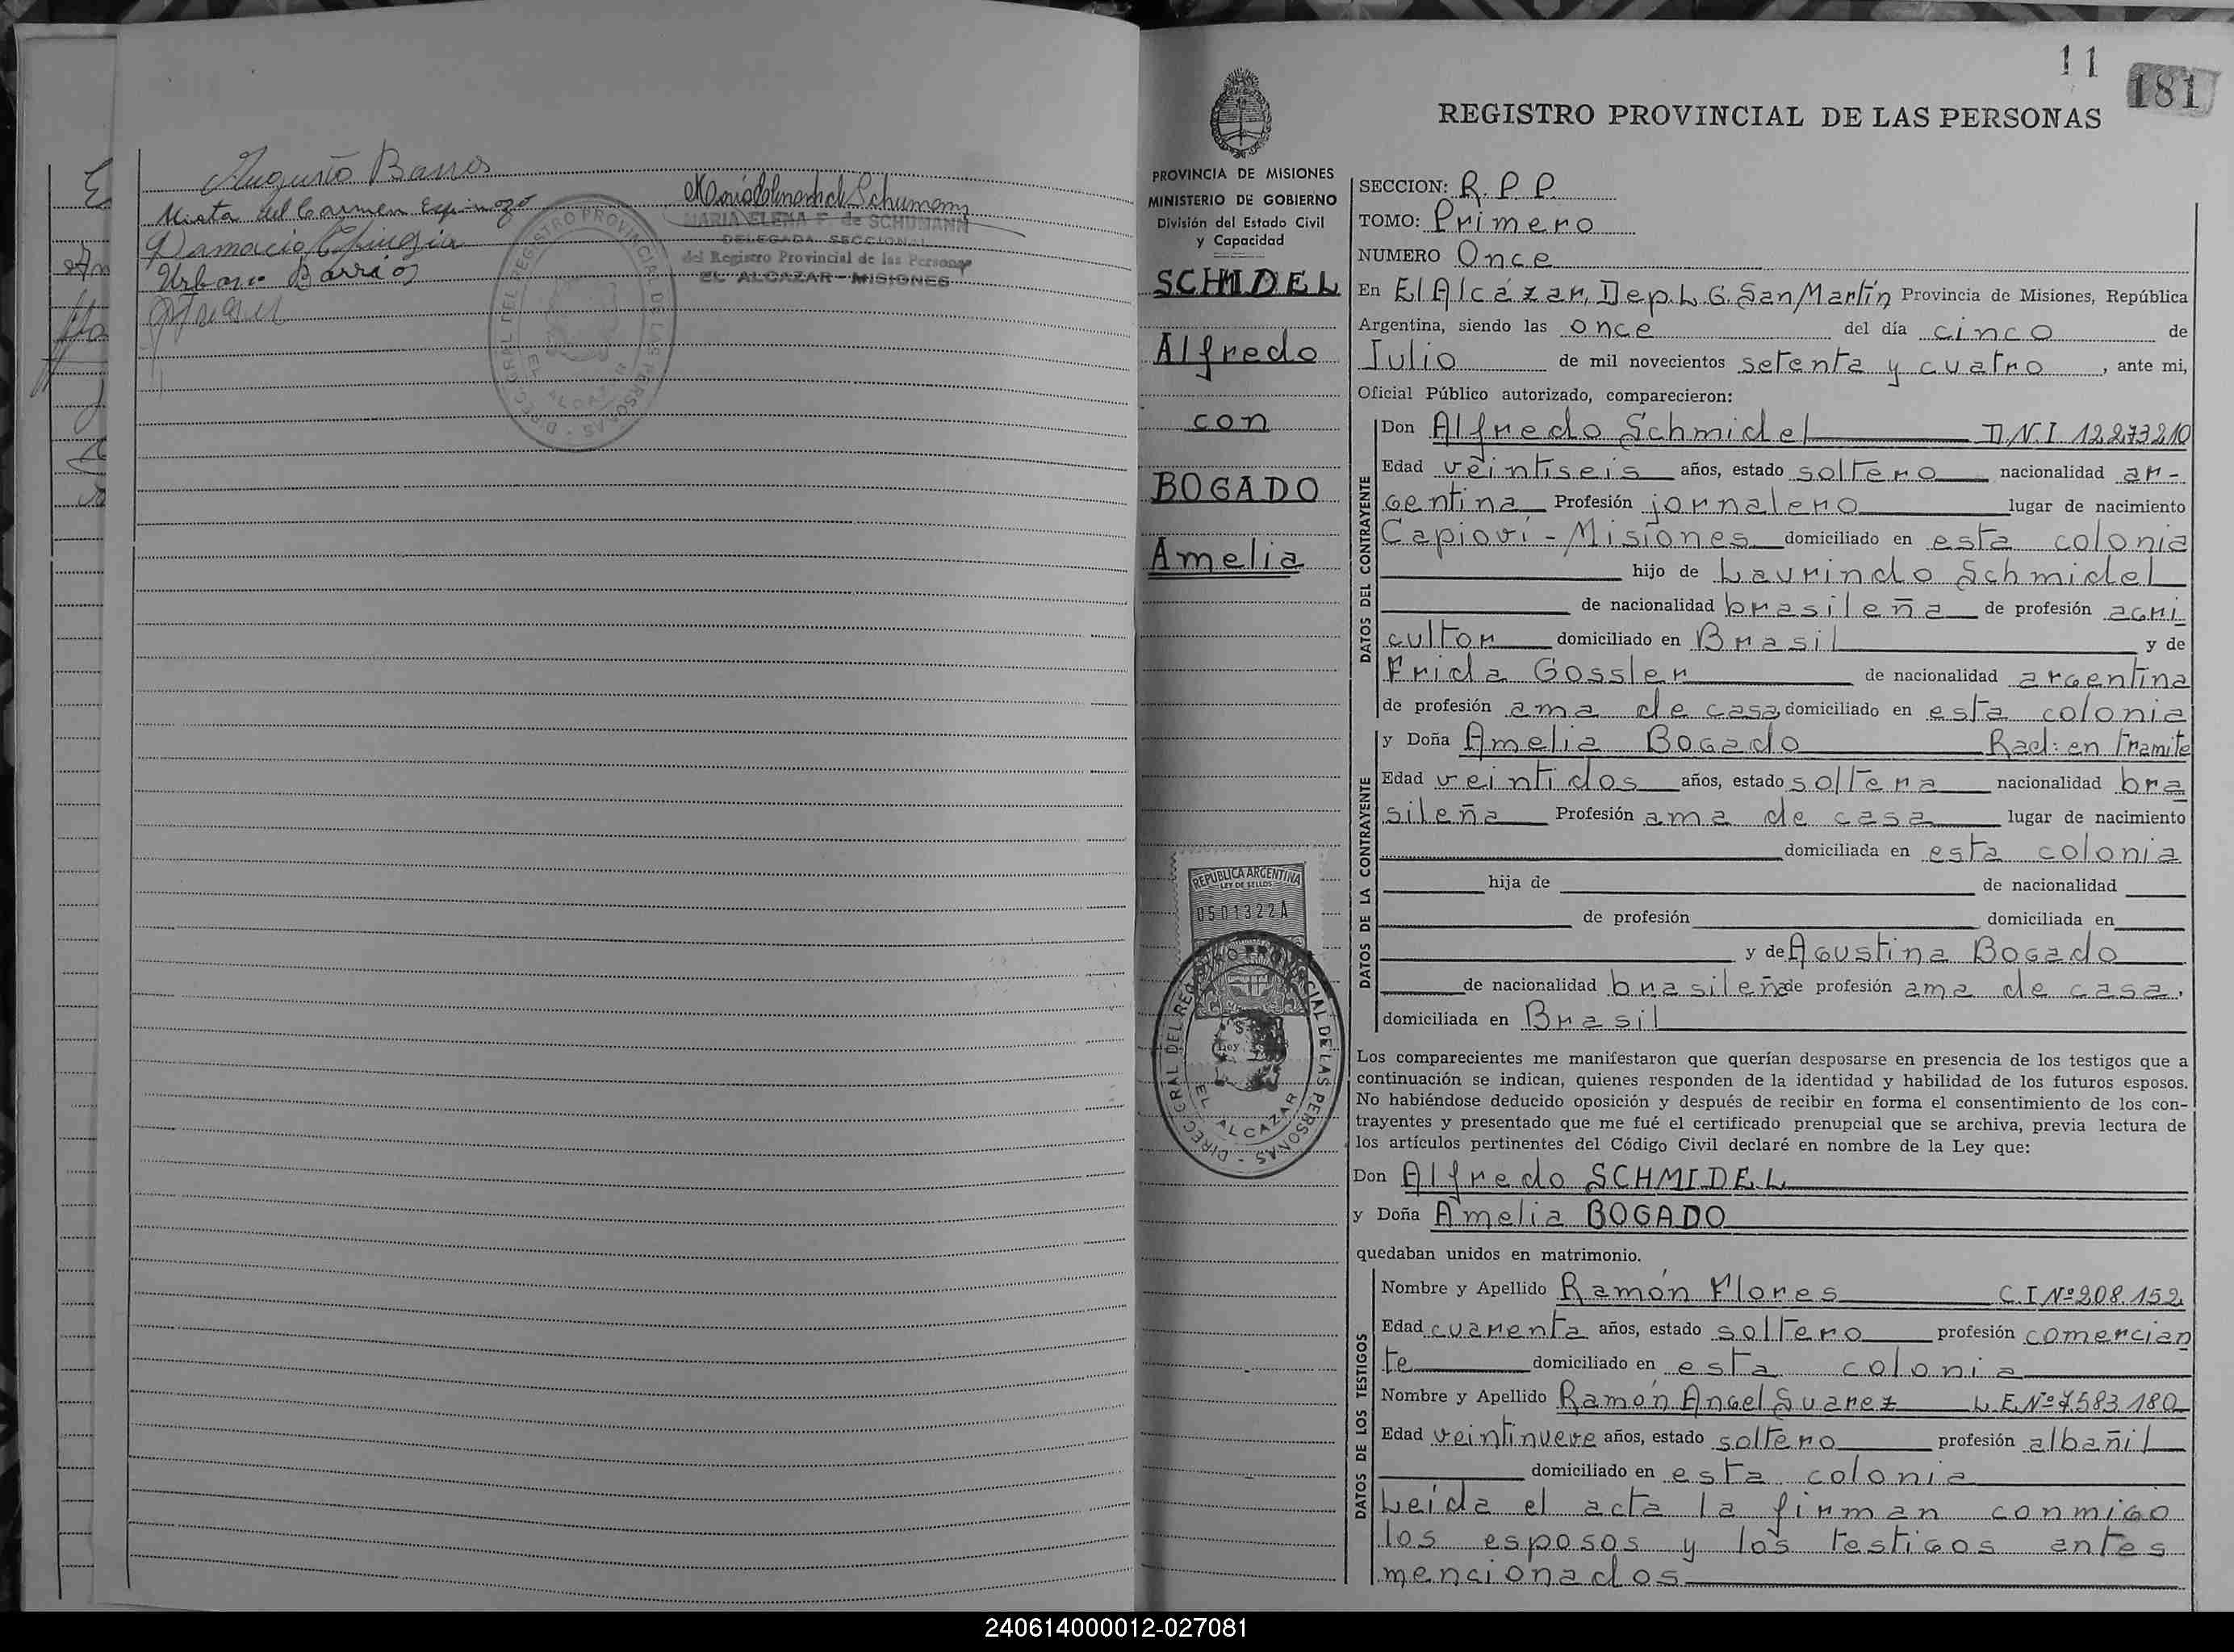 Augusto Barros
Mirta del Carmen Espinozo
Damacio
Urbano Barrios
MARIA ELENA F. de SCHUMANN
DELEGADA SECCIONAL
del Registro Provincial de las Personas
EL ALCAZAR - MISIONES
DIREC. GRAL. DEL REGISTRO PROVINCIAL DE LAS PERSONAS
EL ALCAZAR
11
181
REGISTRO PROVINCIAL DE LAS PERSONAS
PROVINCIA DE MISIONES
MINISTERIO DE GOBIERNO
División del Estado Civil
y Capacidad
SCHMIDEL
Alfredo
con
BOGADO
Amelia
REPUBLICA ARGENTINA
LEY DE SELLOS
0501322A
DIREC. GRAL DEL REGISTRO PROVINCIAL DE LAS PERSONAS
EL ALCAZAR
SECCION: R.P.P.
TOMO: Primero
NUMERO Once
En El Alcázar, Dep. L.G. San Martín Provincia de Misiones, República
Argentina, siendo las once del día cinco de
Julio de mil novecientos setenta y cuatro, ante mi,
Oficial Público autorizado, comparecieron:
DATOS DEL CONTRAYENTE
Don Alfredo Schmidel D.N.I 12.273.210
Edad veintiseis años, estado soltero nacionalidad ar-
gentina Profesión jornalero lugar de nacimiento
Capioví - Misiones domiciliado en esta colonia
hijo de Laurindo Schmidel
de nacionalidad brasileña de profesión agri
cultor domiciliado en Brasil y de
Frida Gossler de nacionalidad argentina
de profesión ama de casa, domiciliado en esta colonia
DATOS DE LA CONTRAYENTE
y Doña Amelia Bogado Rad: en Tramite
Edad veintidos años, estado soltera nacionalidad bra
sileña Profesión ama de casa lugar de nacimiento
domiciliada en esta colonia
hija de de nacionalidad
de profesión domiciliada en
y de Agustina Bogado
de nacionalidad brasileña de profesión ama de casa,
domiciliada en Brasil
Los comparecientes me manifestaron que querían desposarse en presencia de los testigos que a
continuación se indican, quienes responden de la identidad y habilidad de los futuros esposos.
No habiéndose deducido oposición y después de recibir en forma el consentimiento de los con-
trayentes y presentado que me fué el certificado prenupcial que se archiva, previa lectura de
los artículos pertinentes del Código Civil declaré en nombre de la Ley que:
Don Alfredo SCHMIDEL
y Doña Amelia BOGADO
quedaban unidos en matrimonio.
DATOS DE LOS TESTIGOS
Nombre y Apellido Ramón Flores C.I Nº 208.152
Edad cuarenta años, estado soltero profesión comercian
te domiciliado en esta colonia
Nombre y Apellido Ramón Angel Suarez L.E. Nº 7.583.180
Edad veintinueve años, estado soltero profesión albañil
domiciliado en esta colonia
Leída el acta la firman conmigo
los esposos y los testigos antes
mencionados
240614000012-027081